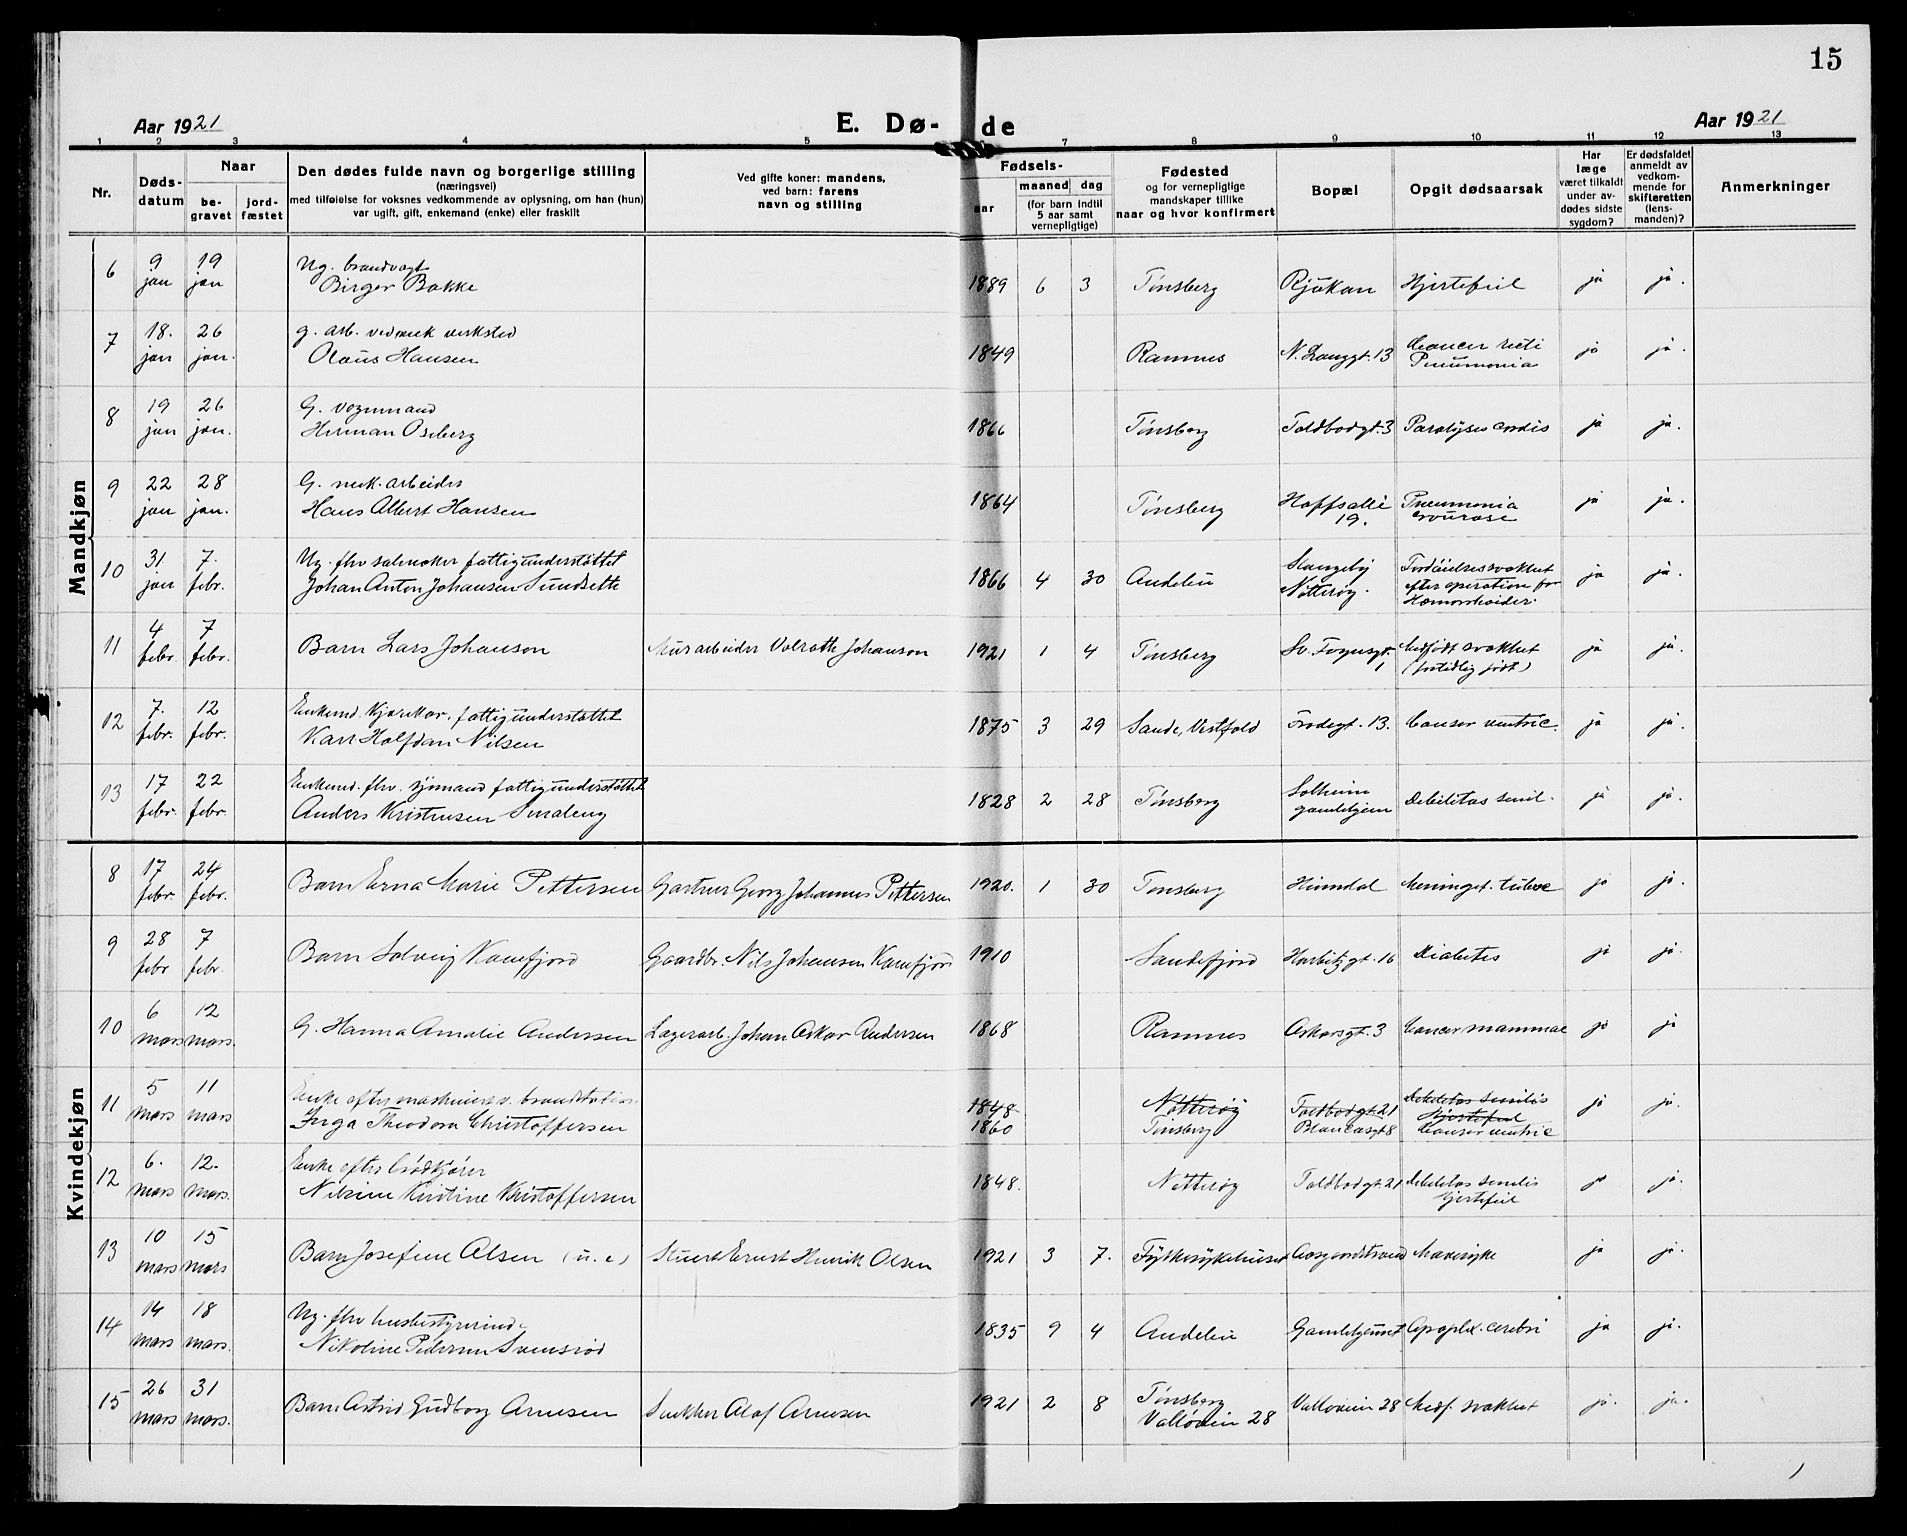 15
Aar 1921
E. Dø-
de
Aar 1921
1 2 3 4 5 7 8 9 10 11 12 13
Nr.
Døds-
datum
Naar
be-
gravet
jord-
fæstet
Den dødes fulde navn og borgerlige stilling
(næringsvei)
med tilføielse for voksnes vedkommende av oplysning, om han (hun)
var ugift, gift, enkemand (enke) eller fraskilt
Ved gifte koner: mandens,
ved barn: farens
navn og stilling
Fødsels-
aar
maaned dag
(for barn indtil
5 aar samt
vernepligtige)
Fødested
og for vernepligtige
mandskaper tillike
naar og hvor konfirmert
Bopæl
Opgit dødsaarsak
Har
læge
været tilkaldt
under av-
dødes sidste
sygdom?
Er dødsfaldet
anmeldt av
vedkom-
mende for
skifteretten
(lens-
manden)?
Anmerkninger
Mandkjøn
6 9 jan 19 jan Ug. brandvagt
Birger Bakke 1889 6 3 Tønsberg Rjukan Hjertefeil ja ja.
7 18. jan 26 jan. g. arb. ved mek verksted
Olaus Hansen 1849 Ramnes N. Langgt. 13 Cancer recti
Pneumonia ja ja.
8 19 jan 26 jan. G. vognmand
Herman Oseberg 1866 Tønsberg Toldbodgt. 3 Paralyses cordis ja ja.
9 22 jan 28 jan. G. mek. arbeider
Hans Albert Hansen 1864 Tønsberg Hoffsallé
19. Pneumonia
crourose ja ja.
10 31 jan 7. febr. Ug. fhv salmaker fattigunderstøttet
Johan Anton Johansen Sundsette 1866 4 30 Andebu Stangeby
Nøtterøy. Fordøielsessvakhet
efter operation for
Hæmorrhoider. ja ja.
11 4 febr. 7 febr. Barn Lars Johanson Murarbeider Volrath Johanson 1921 1 4 Tønsberg Sv. Foynsgt.
1 Medfødt svakhet
(fortidlig født) ja ja.
12 7. febr. 12 febr. Enkemd. kjørekar. fattigunderstøttet
Karl Halfdan Nilsen 1875 3 29 Sande, Vestfold Frodegt. 13. Cancer ventric. ja ja.
13 17 febr. 22 febr. Enkemd. fhv. sjømand fattigunderstøttet
Anders Kristensen Smaleng 1828 2 28 Tønsberg Solheim
gamlehjem Debilitas senil. ja ja.
Kvindekjøn
8 17 febr. 24 febr. Barn Erna Marie Pettersen Gartner Georg Johannes Pettersen 1920. 1 30 Tønsberg Heimdal Meningit. tuberc ja ja.
9 28 febr 7 febr. Barn Solveig Kamfjord Gaardbr. Nils Johansen Kamfjord 1910 Sandefjord Harbitzgt. 16 Diabetes ja ja.
10 6 mars 12 mars. G. Hanna Amalie Anderssen Lagerarb. Johan Oskar Andersen 1868 Ramnes Oskarsgt. 3 Cancer mammae ja ja
11 5 mars 11 mars Enke efter maskinist v. brandstation.
Inga Theodora Christoffersen 1848
1860 Nøtterøy
Tønsberg Toldbodgt 21
Blancasgt 8 Debilitas senilis
Hjertefeil
Cancer ventric ja ja.
12 6. mars 12. mars. Enke efter brødkjører
Nilsine Kirstine Kristoffersen 1848. Nøtterøy Toldbodgt. 21 Debilitas senilis
Hjertefeil ja ja.
13 10 mars 15 mars Barn Josefine Olsen (u. e) Stuert Ernst Henrik Olsen 1921 3 7. Fylkesykehuset Aasgaardstrand Mavesyke ja ja.
14 14 mars 18 mars. Ug. fhv husbestyrerinde
Nikoline Pedersen Svensrød 1835 9 4 Andebu Gamlehjemmet Apoplex. cerebri ja ja.
15 26 mars 31 mars. Barn Astrid Gudborg Arnesen Snekker Olaf Arnesen 1921 2 8 Tønsberg
Valløvein 28 Valløveien 28 Medf. svakhet ja. ja.